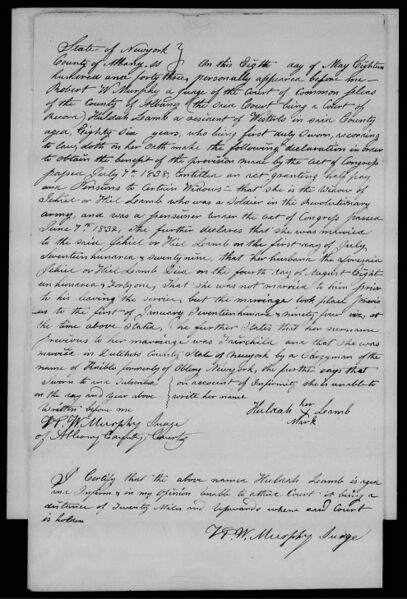 State of Newyork }
County of Albany, ss } On this Eighth day of May Eighteen
hundred and forty three, personally appeared before me
Robert W Murphy a Judge of the Court of Common pleas
of the County of Albany (the said Court being a Court of
Record) Huldah Lamb a resident of Westerlo in said County
aged, Eighty Six years, who being first duly Sworn, according
to law, doth on her oath make the following declaration in order
to obtain the benefit of the provision made by the act of Congress
passed July 7th 1838, Entitled an act granting half pay
and Pensions to Certain Widows - that She is the Widow of
Jehiel or Hiel Lamb who was a Soldier in the Revolutionary
army, and was a pensioner under the act of Congress passed
June 7th 1832, She further declares that She was married
to the said Jehiel or Hiel Lamb on the first day of July
Seventeen hundred & Seventy nine, that her husband the aforesaid
Jehiel or Hiel Lamb Died on the fourth day of August Eight-
een hundred & Forty one, that She was not married to him prior
to his leaving the service, but the marriage took place previ-
ous to the first of January Seventeen hundred & ninety four viz, at
the time above Stated, She further States that her surname
previous to her marriage was Fairchild and that She was
married in Dutchess County State of Newyork by a Clergyman of the
name of formerly of Oblong Newyork, She further says that
Sworn to and Subscribed } on account of Infirmity She is unable to
on the day and year above } write her name
Written before me
R W Murphy Judge
of Albany County Courts
Huldah her Lamb
X
Mark
I Certify that the above named Huldah Lamb is aged
and Infirm & in my opinion unable to attend Court it being a
distance of Twenty Miles and upwards where said Court
is holden
R W Murphy Judge